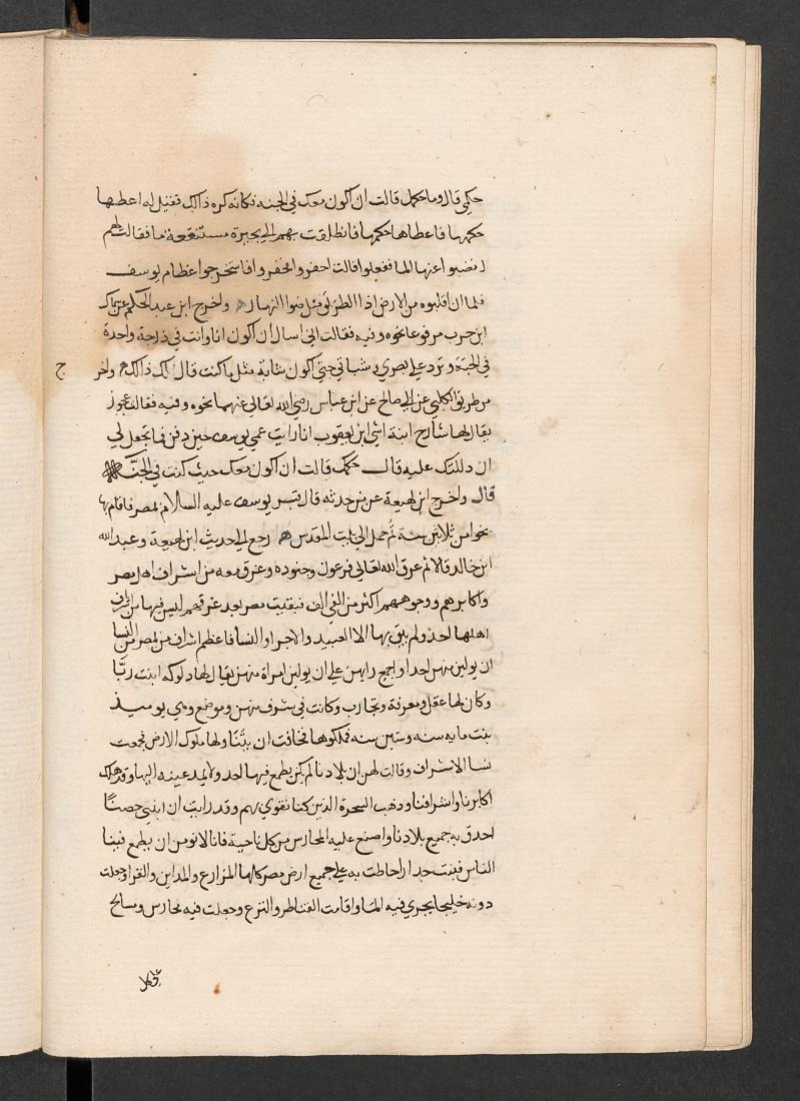 حكمي قال وما حكمك قالت ان اكون معك في الجنه فكانه كره ذالك فقيل له اعطها
حكمها فاعطاها حكمها فانطلقت بهم الي بحيرة مستنقعة ما فقالت لهم
انضبوا عنها الما ففعلوا قالت احفروا فحفروا فاستخرجوا عظام يوسف
فلما ان اقلبوه من الارض اذا الطريق مثل ضوا النهار ه‍ واخرج ابن عبد الحكم عن سماك
ابن حرب مرفوعا نحوه وفيه فقالت اني اسال ان اكون انا وانت في درجة واحدة
في الجنة وترد علي بصري وشبابي حتي اكون شابة مثل ما كنت قال لك ذالك واخر
ج
من طريق الكلبي عن ابي صالح عن ابن عباس رضي الله تعالي عنهما نحوه وفيه فقالت عجوز
يقال لها شارح ابنة اشي ابن يعقوب انا رايت عمي يوسف حين دفن فما تجعل لي
ان دللتك عليه قال حكمك قالت ان اكون معك حيث كنت في الجنة
قال واخرج ابن لهيعة عن من حدثه قال قبر يوسف عليه السلام بمصر فاقام بها
نحوا من ثلاثين سنة ثم حمل الي بيت المقدس ه‍ رجع الي حديث ابن لهيعة وعبد الله
ابن خالد قالا ثم غرق الله تعالي فرعون وجنوده وغرق معه من اشراف اهل مصر
واكابرهم ووجوههم اكثر من الفي الف فبقيت مصر بعد غرقهم ليس فيها من اشراف
اهلها احد ولم يبق بها الا العبيد والاجرا والنسا فاعظم اشراف من بمصر من النسا
ان يولين منهن احدا واجمع رايهن علي ان يولين امراة منهن يقال لها دلوكه ابنت ربا
وكان لها عقل ومعرفة وتجارب وكانت في شرف منهن وموضع وهي يوميذ
بنت مايه سنه وستين سنه فملكوها فخافت ان يتناولها ملوك الارض فجمعت
نسا الاشراف وقالت لهن ان بلادنا لم يكن يطمع فيها احد ولا يمد عينه اليها وقد هلك
اكابرنا واشرافنا وذهب السحرة الذين كنا نقوي بهم وقد رايت ان ابني حصنا
احدق به جميع بلادنا واصنع عليه المحارس من كل ناحية فانا لا نومن ان يطمع فينا
الناس فبنت جدارا احاطت به علي جميع ارض مصر كلها المزارع والمداين والقرا وجعلت
دونه خليجا يجري فيه الما واقامت القناطر والترع وجعلت فيه محارس ومسالح